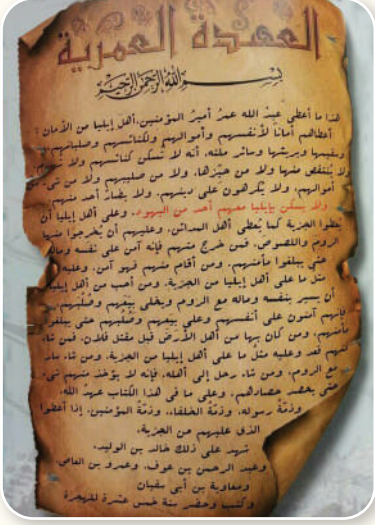 العهدة العمرية
بسم الله الرحمن الرحيم
هذا ما أعطى عبد الله عمر أمير المؤمنين، أهل إيليا من الأمان:
أعطاهم أماناً لأنفسهم وأموالهم ولكنائسهم وصلبانهم،
وسقيمها وبريئها وسائر ملته، أنه لا تسكن كنائسهم ولا تهدم،
ولا ينتقص منها ولا من حيزها، ولا من صليبهم ولا من شيء من
أموالهم، ولا يكرهون على دينهم، ولا يضار أحد منهم،
ولا يسكن بإيليا معهم أحد من اليهود، وعلى أهل إيليا أن
يعطوا الجزية كما يعطي أهل المدائن، وعليهم أن يخرجوا منها
الروم واللصوص، فمن خرج منهم فإنه آمن على نفسه وماله
حتى يبلغوا مأمنهم، ومن أقام منهم فهو آمن، وعليه
مثل ما على أهل إيليا من الجزية، ومن أحب من أهل إيليا
أن يسير بنفسه وماله مع الروم ويخلي بيعهم وصلبهم،
فإنهم آمنون على أنفسهم وعلى بيعهم وصلبهم حتى يبلغوا
مأمنهم، ومن كان بها من أهل الأرض قبل مقتل فلان، فمن شاء
منهم قعد وعليه مثل ما على أهل إيليا من الجزية، ومن شاء سار
مع الروم، ومن شاء رجل إلى أهله، فإنه لا يؤخذ منهم شيء
حتى يحصد حصادهم، وعلى ما في هذا الكتاب عهد الله،
وذمة رسوله، وذمة الخلفاء، وذمة المؤمنين، إذا أعطوا
الذي عليهم من الجزية،
شهد على ذلك خالد بن الوليد،
وعبد الرحمن بن عوف، وعمرو بن العاص،
ومعاوية بن أبي سفيان
وكتب وحضر سنة خمس عشرة للهجرة